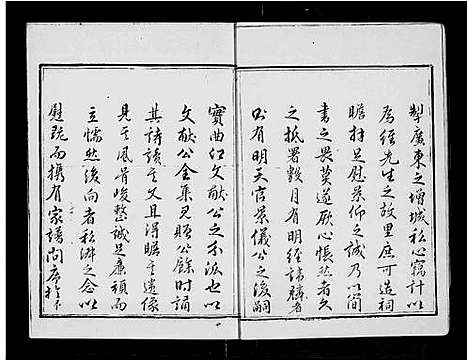 製廣東之增城私心竊計以
為經先生之故里庶可造祠
瞻拜足慰景仰之誠乃以簡
書之畏莫遂厥心悵然者久
之抵署數月有明經諱騰者
出有明天官榮儀公之後嗣
實曲江文獻公之分派也以
文獻公全集見貽公餘時誦
其詩讀其文且得瞻其遺像
見其風骨峻整誠足廉頑而
立懦然後向者私淑之念以
慰既而携有家譜問序於